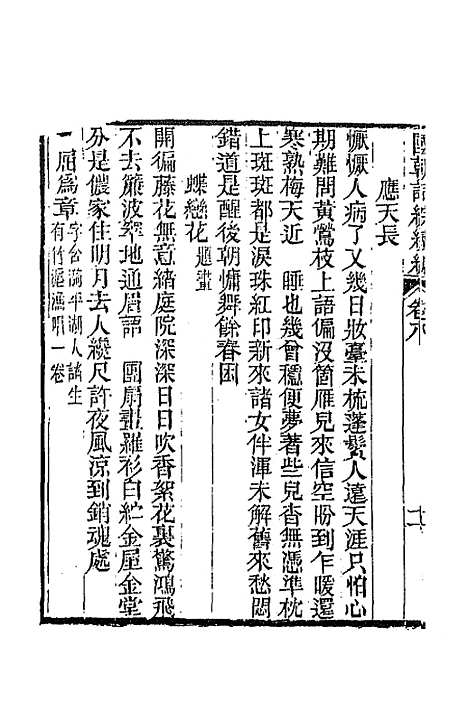 國朝詞綜續編 卷八 十一
應天長
懨懨人病了又幾日妝臺未梳蓬鬢人遠天涯只怕心
期難問黃鶯枝上語偏沒箇雁兒來信空盼到乍暖還
寒熟梅天近 睡也幾曾穩便夢著些兒杳無憑準枕
上斑斑都是淚珠紅印新來諸女伴渾未解舊來愁悶
錯道是醒後朝慵舞餘春困
蝶戀花 題畫
開徧藤花無意緒庭院深深日日吹香絮花裏驚鴻飛
不去簾波窣地通眉語 團扇畫羅衫白紵金屋金堂
分是儂家住明月去人纔尺許夜風涼到銷魂處
屈爲章 字台 平湖人諸生
有竹滬漁唱一卷